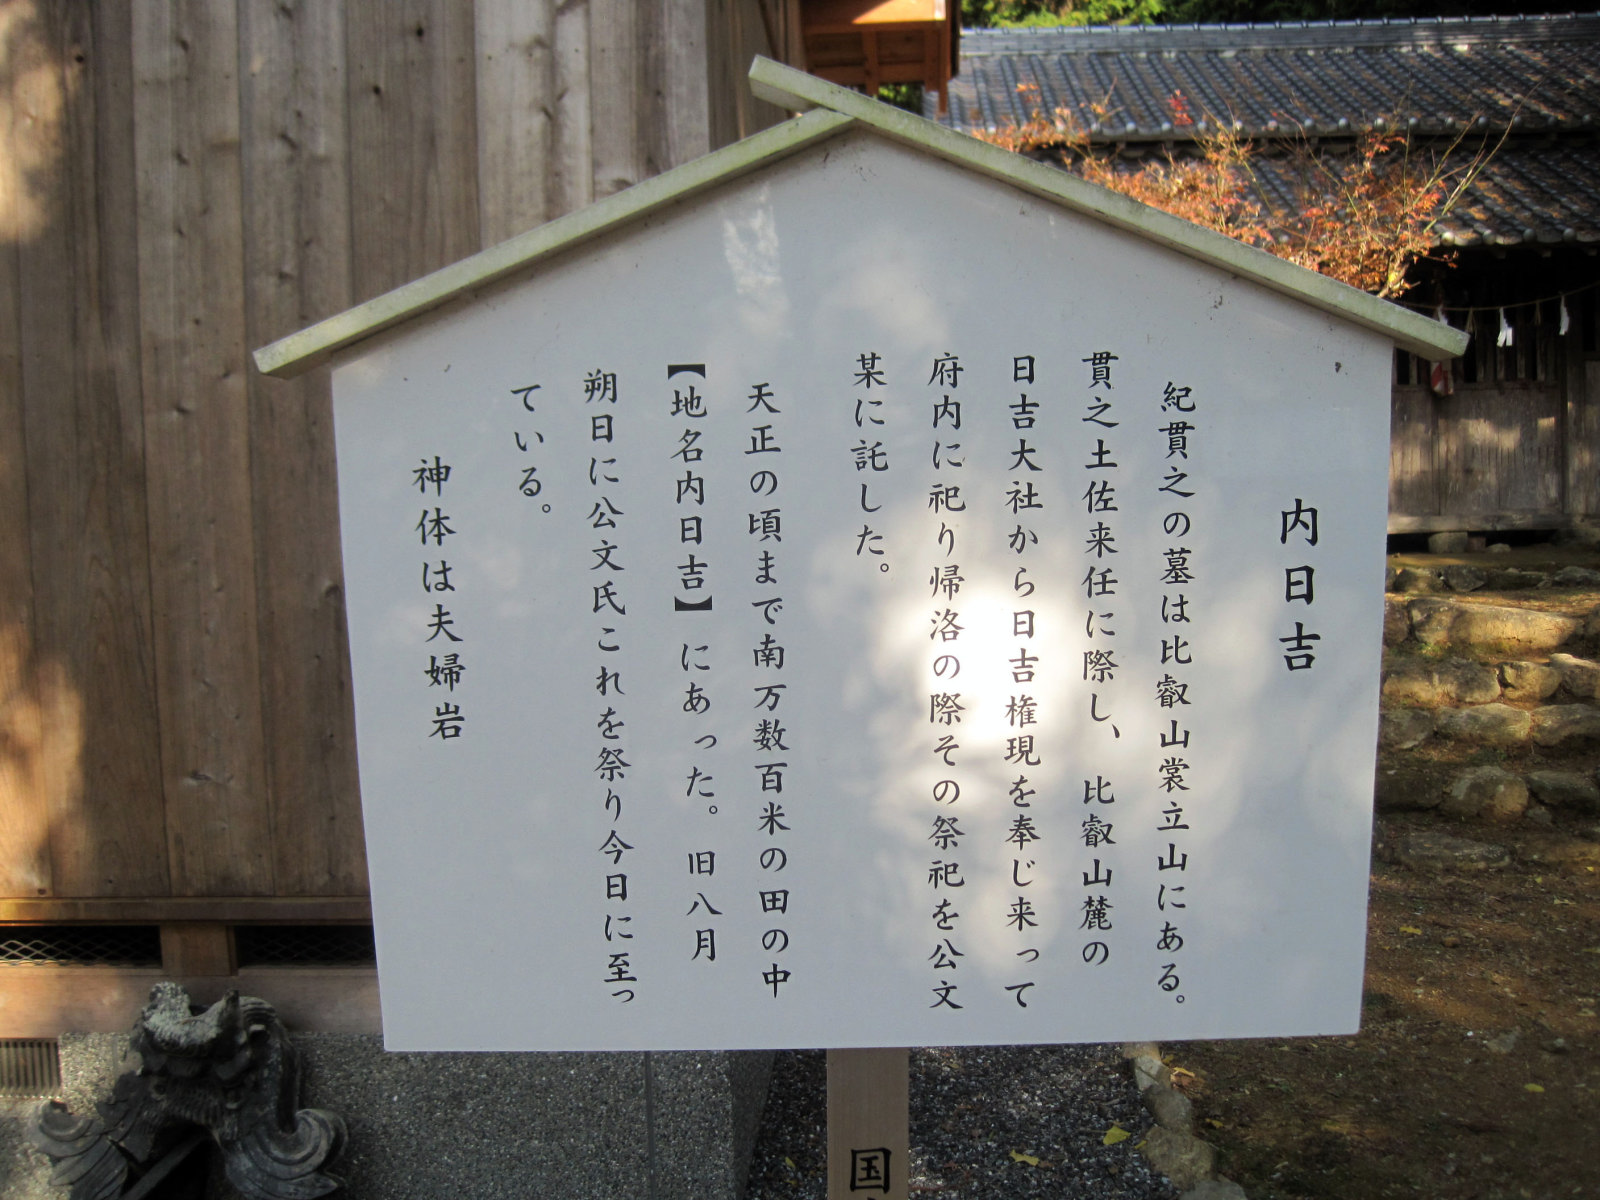 内日吉
紀貫之の墓は比叡山裳立山にある。
貫之土佐来任に際し、比叡山麓の
日吉大社から日吉権現を奉じ来って
府内に祀り帰洛の際その祭祀を公文
某に託した。
天正の頃まで南万数百米の田の中
【地名内日吉】にあった。旧八月
朔日に公文氏これを祭り今日に至っ
ている。
神体は夫婦岩
国